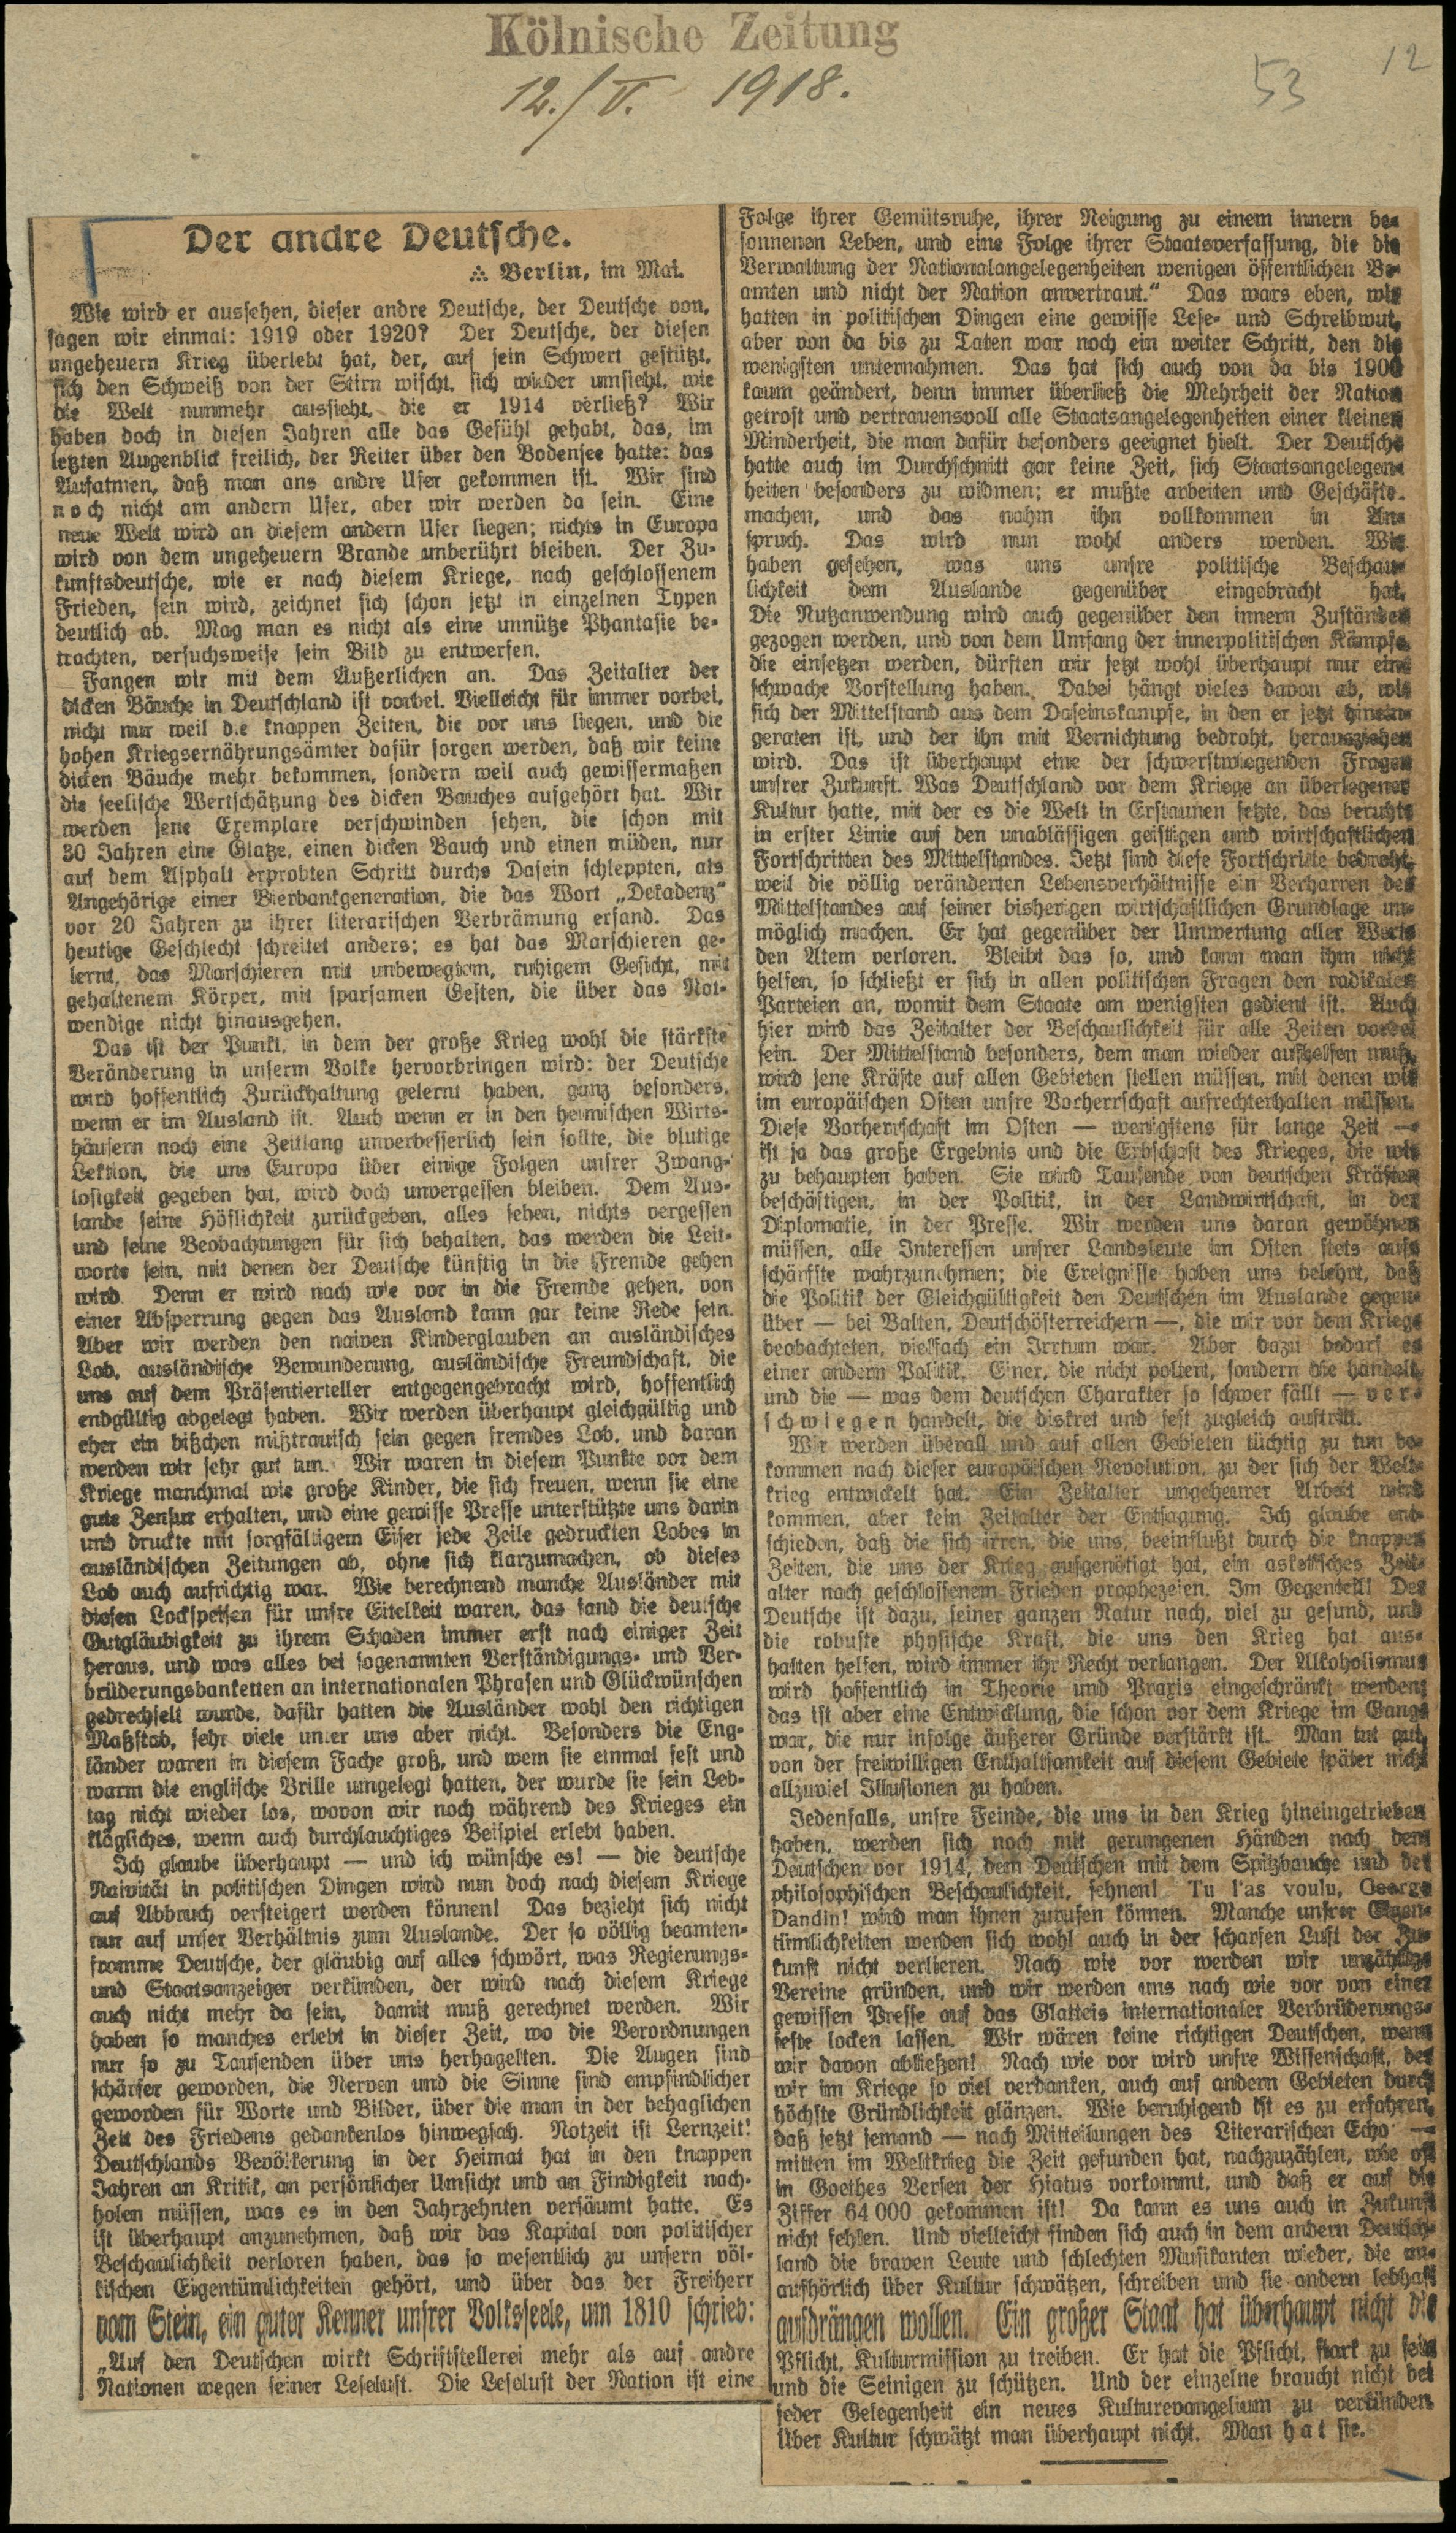 Kölnische Zeitung
12./V. 1918.
53
12
Der andre Deutsche.
∴ Berlin, im Mai.
Wie wird er aussehen, dieser andre Deutsche, der Deutsche von,
sagen wir einmal: 1919 oder 1920? Der Deutsche, der diesen
ungeheuern Krieg überlebt hat, der, auf sein Schwert gestützt,
sich den Schweiß von der Stirn wischt, sich wieder umsieht, wie
die Welt nunmehr aussieht, die er 1914 verließ? Wir
haben doch in diesen Jahren alle das Gefühl gehabt, das, im
letzten Augenblick freilich, der Reiter über den Bodensee hatte: das
Aufatmen, daß man ans andre Ufer gekommen ist. Wir sind
noch nicht am andern Ufer, aber wir werden da sein. Eine
neue Welt wird an diesem andern Ufer liegen; nichts in Europa
wird von dem ungeheuern Brande unberührt bleiben. Der Zu-
kunftsdeutsche, wie er nach diesem Kriege, nach geschlossenem
Frieden, sein wird, zeichnet sich schon jetzt in einzelnen Typen
deutlich ab. Mag man es nicht als eine unnütze Phantasie be-
trachten, versuchsweise sein Bild zu entwerfen.
Fangen wir mit dem Äußerlichen an. Das Zeitalter der
dicken Bäuche in Deutschland ist vorbei. Vielleicht für immer vorbei,
nicht nur weil die knappen Zeiten, die vor uns liegen, und die
hohen Kriegsernährungsämter dafür sorgen werden, daß wir keine
dicken Bäuche mehr bekommen, sondern weil auch gewissermaßen
die seelische Wertschätzung des dicken Bauches aufgehört hat. Wir
werden jene Exemplare verschwinden sehen, die schon mit
30 Jahren eine Glatze, einen dicken Bauch und einen müden, nur
auf dem Asphalt erprobten Schritt durchs Dasein schleppten, als
Angehörige einer Bierbankgeneration, die das Wort „Dekadenz“
vor 20 Jahren zu ihrer literarischen Verbrämung erfand. Das
heutige Geschlecht schreitet anders; es hat das Marschieren ge-
lernt, das Marschieren mit unbewegtem, ruhigem Gesicht, mit
gehaltenem Körper, mit sparsamen Gesten, die über das Not-
wendige nicht hinausgehen.
Das ist der Punkt, in dem der große Krieg wohl die stärkste
Veränderung in unserm Volke hervorbringen wird: der Deutsche
wird hoffentlich Zurückhaltung gelernt haben, ganz besonders,
wenn er im Ausland ist. Auch wenn er in den heimischen Wirts-
häusern noch eine Zeitlang unverbesserlich sein sollte, die blutige
Lektion, die uns Europa über einige Folgen unsrer Zwang-
losigkeit gegeben hat, wird doch unvergessen bleiben. Dem Aus-
lande seine Höflichkeit zurückgeben, alles sehen, nichts vergessen
und seine Beobachtungen für sich behalten, das werden die Leit-
worte sein, mit denen der Deutsche künftig in die Fremde gehen
wird. Denn er wird nach wie vor in die Fremde gehen, von
einer Absperrung gegen das Ausland kann gar keine Rede sein.
Aber wir werden den naiven Kinderglauben an ausländisches
Lob, ausländische Bewunderung, ausländische Freundschaft, die
uns auf dem Präsentierteller entgegengebracht wird, hoffentlich
endgültig abgelegt haben. Wir werden überhaupt gleichgültig und
eher ein bißchen mißtrauisch sein gegen fremdes Lob, und daran
werden wir sehr gut tun. Wir waren in diesem Punkte vor dem
Kriege manchmal wie große Kinder, die sich freuen, wenn sie eine
gute Zensur erhalten, und eine gewisse Presse unterstützte uns darin
und druckte mit sorgfältigem Eifer jede Zeile gedruckten Lobes in
ausländischen Zeitungen ab, ohne sich klarzumachen, ob dieses
Lob auch aufrichtig war. Wie berechnend manche Ausländer mit
diesen Lockspeisen für unsre Eitelkeit waren, das fand die deutsche
Gutgläubigkeit zu ihrem Schaden immer erst nach einiger Zeit
heraus, und was alles bei sogenannten Verständigungs- und Ver-
brüderungsbanketten an internationalen Phrasen und Glückwünschen
gedrechselt wurde, dafür hatten die Ausländer wohl den richtigen
Maßstab, sehr viele unter uns aber nicht. Besonders die Eng-
länder waren in diesem Fache groß, und wem sie einmal fest und
warm die englische Brille umgelegt hatten, der wurde sie sein Leb-
tag nicht wieder los, wovon wir noch während des Krieges ein
klägliches, wenn auch durchlauchtiges Beispiel erlebt haben.
Ich glaube überhaupt — und ich wünsche es! — die deutsche
Naivität in politischen Dingen wird nun doch nach diesem Kriege
auf Abbruch versteigert werden können! Das bezieht sich nicht
nur auf unser Verhältnis zum Auslande. Der so völlig beamten-
fromme Deutsche, der gläubig auf alles schwört, was Regierungs-
und Staatsanzeiger verkünden, der wird nach diesem Kriege
auch nicht mehr da sein, damit muß gerechnet werden. Wir
haben so manches erlebt in dieser Zeit, wo die Verordnungen
nur so zu Tausenden über uns herhagelten. Die Augen sind
schärfer geworden, die Nerven und die Sinne sind empfindlicher
geworden für Worte und Bilder, über die man in der behaglichen
Zeit des Friedens gedankenlos hinwegsah. Notzeit ist Lernzeit!
Deutschlands Bevölkerung in der Heimat hat in den knappen
Jahren an Kritik, an persönlicher Umsicht und an Findigkeit nach-
holen müssen, was es in den Jahrzehnten versäumt hatte. Es
ist überhaupt anzunehmen, daß wir das Kapital von politischer
Beschaulichkeit verloren haben, das so wesentlich zu unsern völ-
kischen Eigentümlichkeiten gehört, und über das der Freiherr
vom Stein, ein guter Kenner unsrer Volksseele, um 1810 schrieb:
„Auf den Deutschen wirkt Schriftstellerei mehr als auf andre
Nationen wegen seiner Leselust. Die Leselust der Nation ist eine
Folge ihrer Gemütsruhe, ihrer Neigung zu einem innern be-
sonnenen Leben, und eine Folge ihrer Staatsverfassung, die die
Verwaltung der Nationalangelegenheiten wenigen öffentlichen Be-
amten und nicht der Nation anvertraut.“ Das wars eben, wir
hatten in politischen Dingen eine gewisse Lese- und Schreibwut,
aber von da bis zu Taten war noch ein weiter Schritt, den die
wenigsten unternahmen. Das hat sich auch von da bis 1900
kaum geändert, denn immer überließ die Mehrheit der Nation
getrost und vertrauensvoll alle Staatsangelegenheiten einer kleinen
Minderheit, die man dafür besonders geeignet hielt. Der Deutsche
hatte auch im Durchschnitt gar keine Zeit, sich Staatsangelegen-
heiten besonders zu widmen; er mußte arbeiten und Geschäfte
machen, und das nahm ihn vollkommen in An-
spruch. Das wird nun wohl anders werden. Wir
haben gesehen, was uns unsre politische Beschau-
lichkeit dem Auslande gegenüber eingebracht hat.
Die Nutzanwendung wird auch gegenüber den innern Zuständen
gezogen werden, und von dem Umfang der innerpolitischen Kämpfe,
die einsetzen werden, dürften wir jetzt wohl überhaupt nur eine
schwache Vorstellung haben. Dabei hängt vieles davon ab, wie
sich der Mittelstand aus dem Daseinskampfe, in den er jetzt hinein-
geraten ist, und der ihn mit Vernichtung bedroht, herausziehen
wird. Das ist überhaupt eine der schwerstwiegenden Fragen
unsrer Zukunft. Was Deutschland vor dem Kriege an überlegener
Kultur hatte, mit der es die Welt in Erstaunen setzte, das beruhte
in erster Linie auf den unablässigen geistigen und wirtschaftlichen
Fortschritten des Mittelstandes. Jetzt sind diese Fortschritte bedroht,
weil die völlig veränderten Lebensverhältnisse ein Verharren des
Mittelstandes auf seiner bisherigen wirtschaftlichen Grundlage un-
möglich machen. Er hat gegenüber der Umwertung aller Werte
den Atem verloren. Bleibt das so, und kann man ihm nicht
helfen, so schließt er sich in allen politischen Fragen den radikalen
Parteien an, womit dem Staate am wenigsten gedient ist. Auch
hier wird das Zeitalter der Beschaulichkeit für alle Zeiten vorbei
sein. Der Mittelstand besonders, dem man wieder aufhelfen muß,
wird jene Kräfte auf allen Gebieten stellen müssen, mit denen wir
im europäischen Osten unsre Vorherrschaft aufrechterhalten müssen.
Diese Vorherrschaft im Osten — wenigstens für lange Zeit —
ist ja das große Ergebnis und die Erbschaft des Krieges, die wir
zu behaupten haben. Sie wird Tausende von deutschen Kräften
beschäftigen, in der Politik, in der Landwirtschaft, in der
Diplomatie, in der Presse. Wir werden uns daran gewöhnen
müssen, alle Interessen unsrer Landsleute im Osten stets aufs
schärfste wahrzunehmen; die Ereignisse haben uns belehrt, daß
die Politik der Gleichgültigkeit den Deutschen im Auslande gegen-
über — bei Balten, Deutschösterreichern —, die wir vor dem Kriege
beobachteten, vielfach ein Irrtum war. Aber dazu bedarf es
einer andern Politik. Einer, die nicht poltert, sondern die handelt,
und die — was dem deutschen Charakter so schwer fällt — ver-
schwiegen handelt, die diskret und fest zugleich auftritt.
Wir werden überall und auf allen Gebieten tüchtig zu tun be-
kommen nach dieser europäischen Revolution, zu der sich der Welt-
krieg entwickelt hat. Ein Zeitalter ungeheurer Arbeit wird
kommen, aber kein Zeitalter der Entsagung. Ich glaube ent-
schieden, daß die sich irren, die uns, beeinflußt durch die knappen
Zeiten, die uns der Krieg aufgenötigt hat, ein asketisches Zeit-
alter nach geschlossenem Frieden prophezeien. Im Gegenteil! Der
Deutsche ist dazu, seiner ganzen Natur nach, viel zu gesund, und
die robuste physische Kraft, die uns den Krieg hat aus-
halten helfen, wird immer ihr Recht verlangen. Der Alkoholismus
wird hoffentlich in Theorie und Praxis eingeschränkt werden;
das ist aber eine Entwicklung, die schon vor dem Kriege im Gange
war, die nur infolge äußerer Gründe verstärkt ist. Man tut gut,
von der freiwilligen Enthaltsamkeit auf diesem Gebiete später nicht
allzuviel Illusionen zu haben.
Jedenfalls, unsre Feinde, die uns in den Krieg hineingetrieben
haben, werden sich noch mit gerungenen Händen nach dem
Deutschen vor 1914, dem Deutschen mit dem Spitzbauche und der
philosophischen Beschaulichkeit, sehnen! Tu l'as voulu, George
Dandin! wird man ihnen zurufen können. Manche unsrer Eigen-
tümlichkeiten werden sich wohl auch in der scharfen Luft der Zu-
kunft nicht verlieren. Nach wie vor werden wir unzählige
Vereine gründen, und wir werden uns nach wie vor von einer
gewissen Presse auf das Glatteis internationaler Verbrüderungs-
feste locken lassen. Wir wären keine richtigen Deutschen, wenn
wir davon abließen! Nach wie vor wird unsre Wissenschaft, der
wir im Kriege so viel verdanken, auch auf andern Gebieten durch
höchste Gründlichkeit glänzen. Wie beruhigend ist es zu erfahren,
daß jetzt jemand — nach Mitteilungen des Literarischen Echo —
mitten im Weltkrieg die Zeit gefunden hat, nachzuzählen, wie oft
in Goethes Versen der Hiatus vorkommt, und daß er auf die
Ziffer 64 000 gekommen ist! Da kann es uns auch in Zukunft
nicht fehlen. Und vielleicht finden sich auch in dem andern Deutsch-
land die braven Leute und schlechten Musikanten wieder, die un-
aufhörlich über Kultur schwätzen, schreiben und sie andern lebhaft
aufdrängen wollen. Ein großer Staat hat überhaupt nicht die
Pflicht, Kulturmission zu treiben. Er hat die Pflicht, stark zu sein
und die Seinigen zu schützen. Und der einzelne braucht nicht bei
jeder Gelegenheit ein neues Kulturevangelium zu verkünden.
Über Kultur schwätzt man überhaupt nicht. Man hat sie.